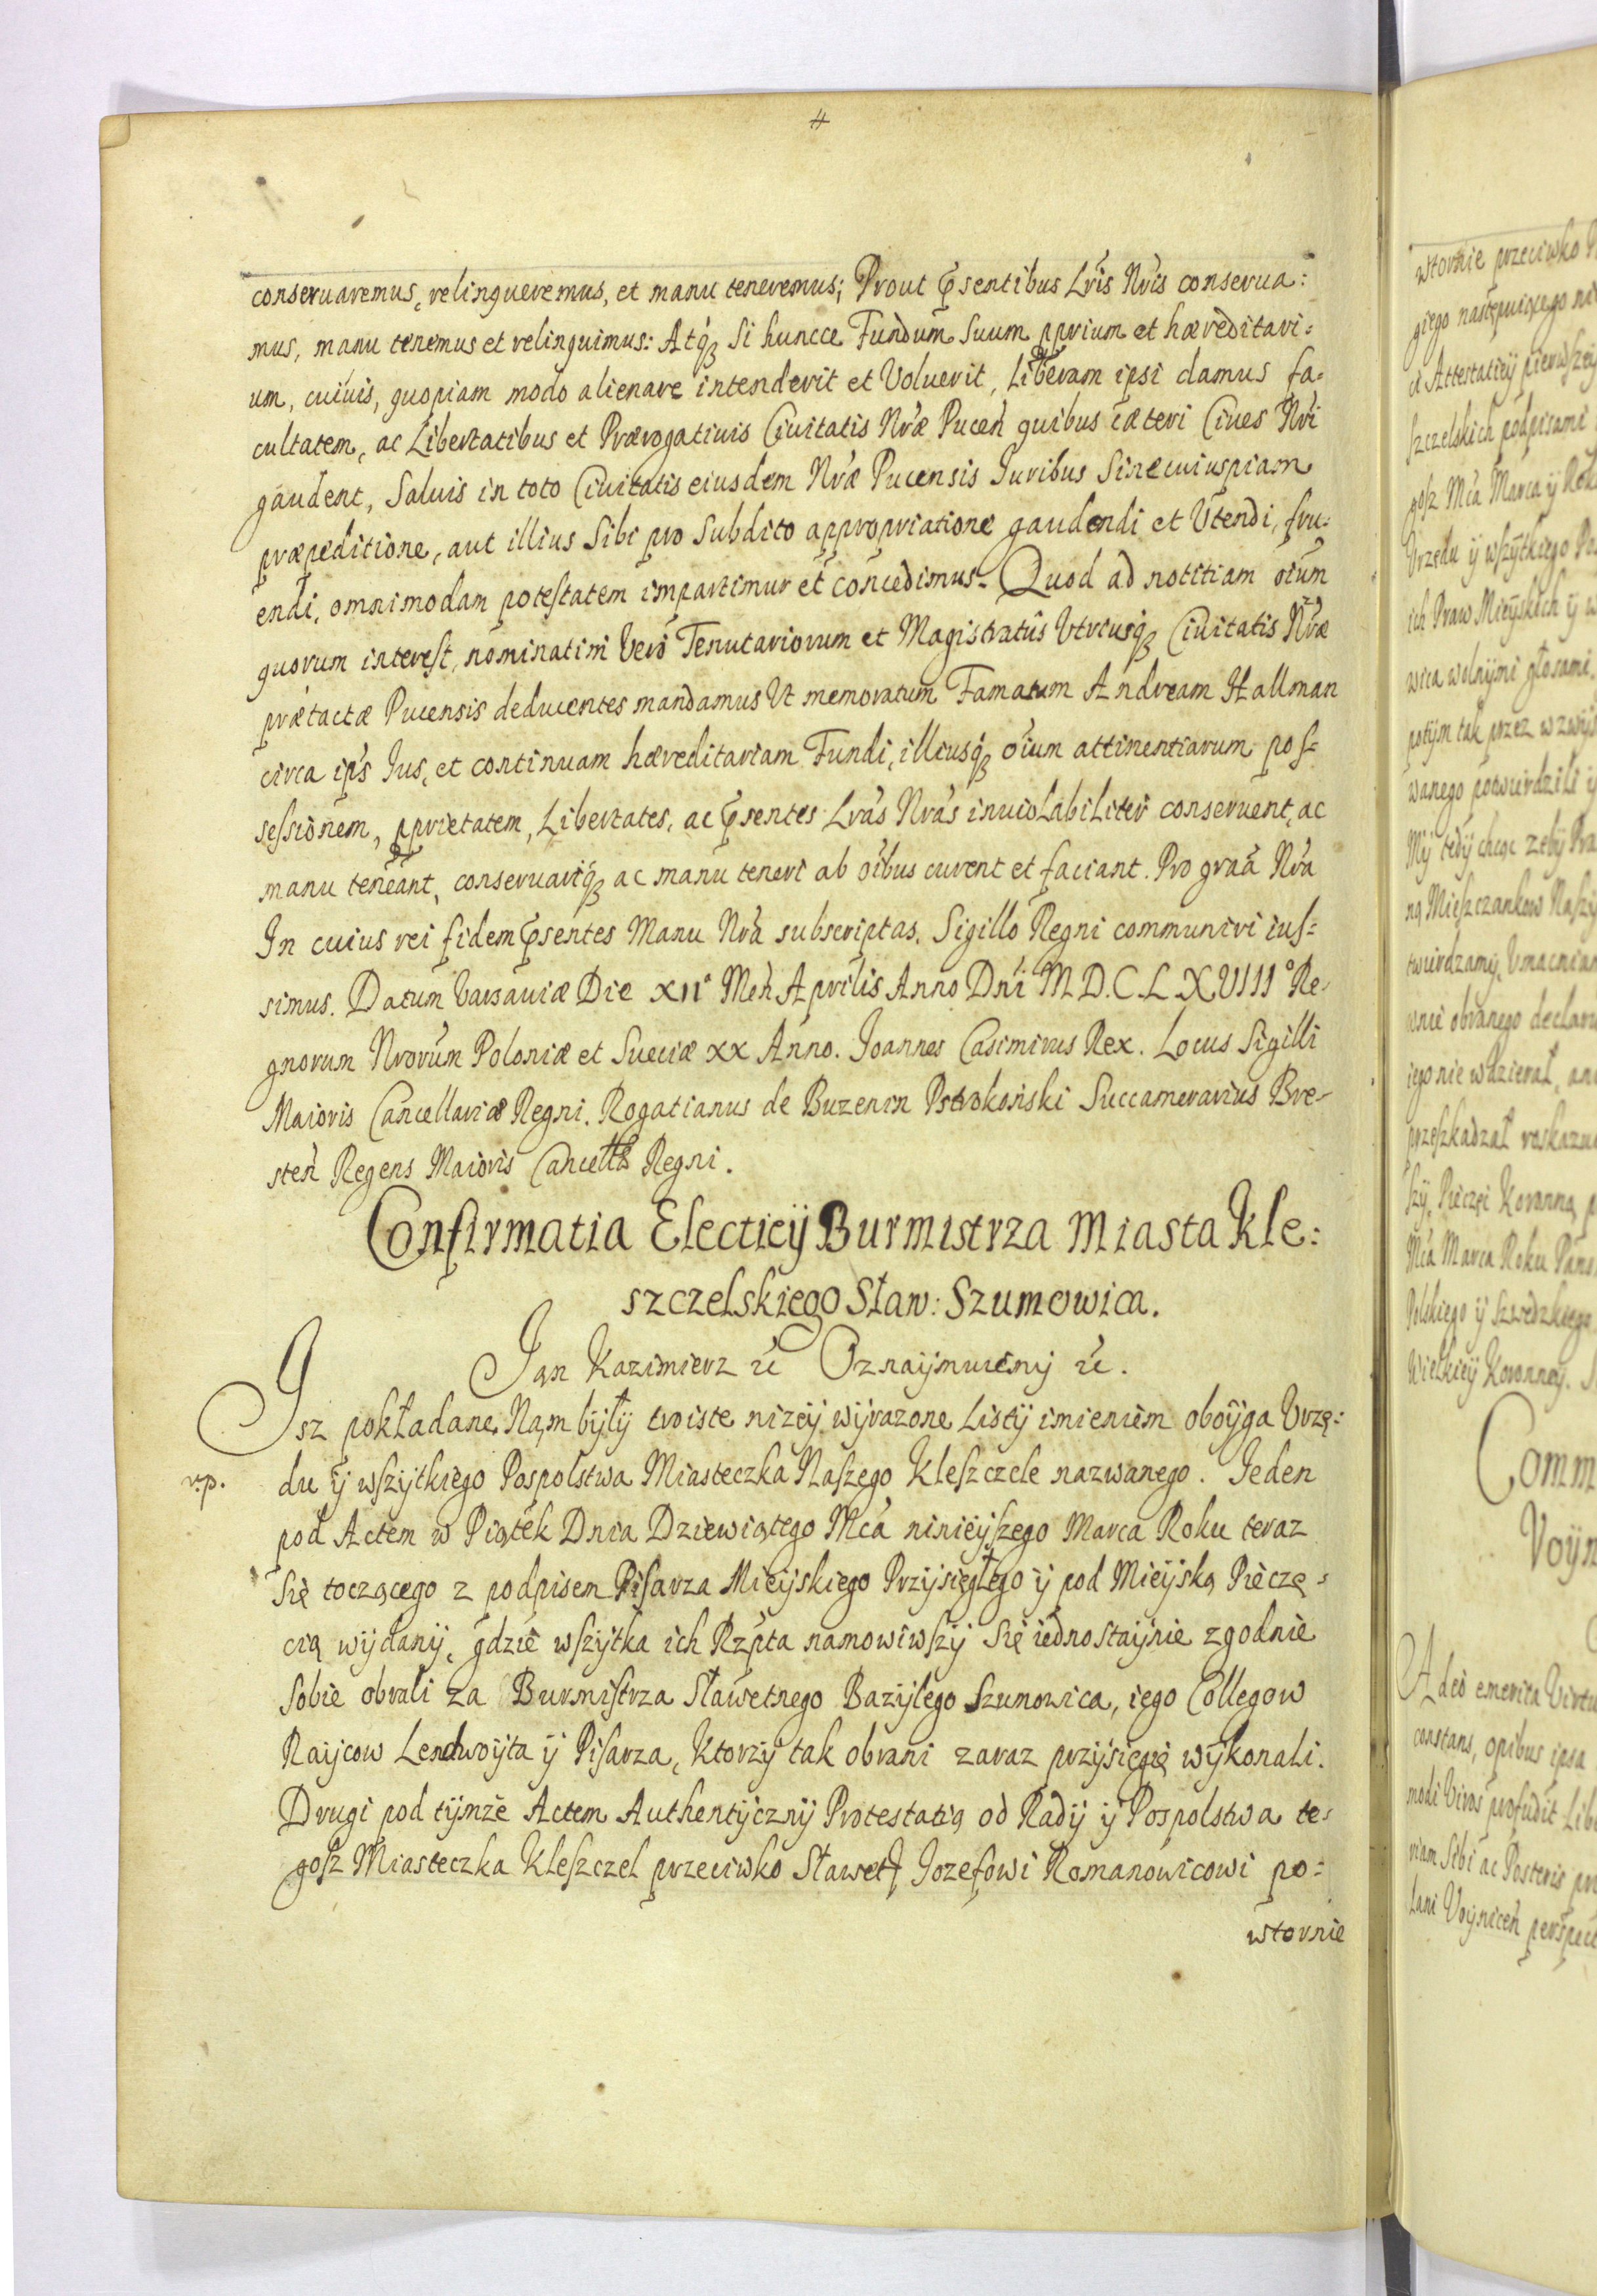 4
conseruaremus, relinqueremus, et manu teneremus; Prout p̃sentibus Lris Nris conserua:
mus, manu tenemus et relinquimus: Atq́ʒ Si huncce Fundum Suum pprium et hæreditari=
um, cuiuis, quopiam modo alienare intenderit et Voluerit, Liberam ipsi damus fa=
cultatem, ac Libertatibus et Prærogatiuis Ciuitatis Nræ Puceń quibus cæteri Ciues Nri
gaudent, Saluis in toto Ciuitatis eiusdem Nræ Pucensis Juribus Sine cuiuspiam
præpeditione, aut illius Sibi pro Subdito appropriatione gaudendi et Utendi, fru=
endi, omnimodam potestatem impartimur et concedimus. Quod ad notitiam oium
quorum interest, nominatim Vero Tenutariorum et Magistratûs Utriusq́ʒ Ciuitatis Nræ
prætactæ Pucensis deducentes mandamus Ut memoratum Famatum Andream Hallman
circa ips Jus, et continuam hæreditariam Fundi, illiusq́ʒ oium attinentiarum pos=
sessionem, pprietatem, Libertates, ac p̃sentes Lras Nras inuiolabiliter conseruent, ac
manu teneant, conseruariq́ʒ ac manu teneri ab oibus curent et faciant. Pro graa Nra
In cuius rei fidem p̃sentes Manu Nra subscriptas, Sigillo Regni communiri ius=
simus. Datum Varsauiæ Die XII° Meń Aprilis Anno Dni M.D.C.L.XVIII° Re=
gnorum Nrorum Poloniæ et Sueciæ XX Anno. Joannes Casimirus Rex. Locus Sigilli
Maioris Cancellariæ Regni. Rogatianus de Buzenin Pstrokoński Succamerarius Bre-
steń Regens Maioris Cancellæ Regni.
Confirmatia Electieÿ Burmistrza Miasta Kle:
szczelskiego Sław: Szumowica.
Jan Kazimierz rć Oznaÿmuiemÿ rć.
Jsz pokładane Nam bÿłÿ troiste niżeÿ wÿrazone Listÿ imieniem oboÿga Vrzę=
r.p.
du ÿ wszÿtkiego Pospolstwa Miasteczka Naszego Kleszczele nazwanego. Jeden
pod Actem w Piątek Dnia Dziewiątego Mca ninieÿszego Marca Roku teraz
Się toczącego z podpisem Pisarza Mieÿskiego Przÿsięgłego ÿ pod Mieÿską Pieczę=
cią wÿdanÿ, gdzie wszÿtka ich Rzpta namowiwszÿ Się iednostaÿnie zgodnie
Sobie obrali za Burmistrza Sławetnego Bazÿlego Szumowica, iego Collegow
Raÿcow Lendwoÿta ÿ Pisarza, Ktorzÿ tak obrani zaraz przÿsięgię wÿkonali.
Drugi pod tÿmże Actem Authentÿcznÿ Protestatią od Radÿ ÿ Pospolstwa te=
gosz Miasteczka Kleszczel przeciwko Sławet Jozefowi Romanowicowi po=
wtornie
wtornie przeciwko
giego nastepuiącego
Attestatieÿ pierwszeÿ
szczelskich podpisami
gosz Mca Marca ÿ
Vrzędu ÿ wszÿtkiego
ich Praw Mieÿskich ÿ
wica wolnÿmi głosami
potÿm tak przez
wanego potwierdzili
Mÿ tedÿ chcąc zebÿ
Mieszczankow
twierdzamÿ, Vmacniam
obranego
iego nie wdzierał
przeszkadzał
Szÿ, Pieczęi Koronną
Mca Marca Roku
Polskiego ÿ Szwedzkiego
Wielkieÿ Koronneÿ.
Comm
Voÿn
Adeo emerita Virtu
constans, opibus ipsa
modi Viros profudit
riam Sibi ac Posteris
Voÿniceń